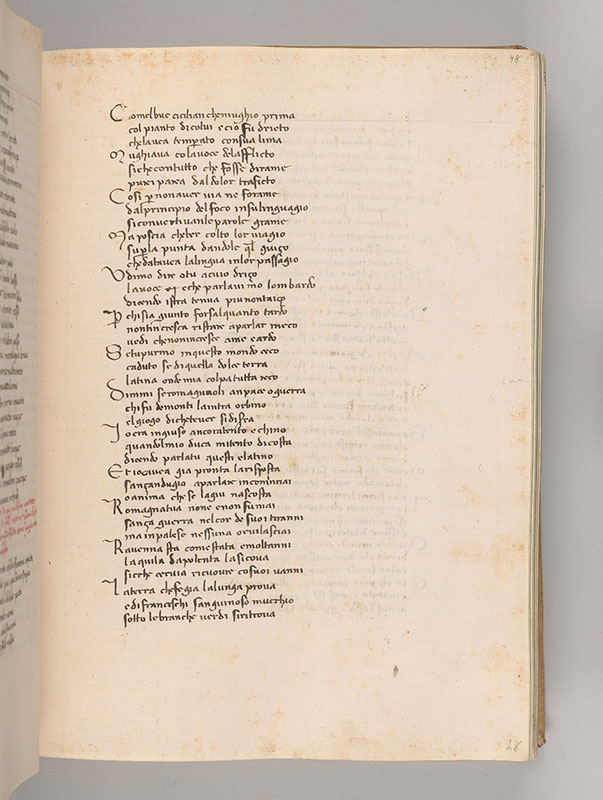 48
Comelbue cicilian chemughio prima
col pianto dicolui e cio fu drieto
chelavea temperato consua lima
Mughiava colavoce delafflicto
siche contutto che fosse dirame
pur parea dal dolor traficto
Cosi p non aver via ne forame
dal principio del foco insulinguagio
si convertivan le parole grame
Ma poscia cheber colto lor viagio
su pla punta dandole ql guiço
che datavea lalingua inlor passagio
Udimo dire otu acuio driço
lavoce et che parlavi mo lombardo
dicendo istra tenva piu nontaiço
Pchisia giunto forsalquanto tardo
nontincresca ristare aparlar meco
vedi chenonincresce ame eardo
Setupurmo inquesto mondo ceco
caduto se diquella dolce terra
latina ondemia colpa tutta reco
Dimmi seromagniuoli anpace oguerra
chi fu demonti laintra orbino
elgiogo dichetever sidifra
Io era ingiuso ancoratento echino
quandolmio duca mitento dicosta
dicendo parlatu questi elatino
Et iocavea gia pronta larisposta
sança ndugio aparlare incominciai
o anima che se lagiu nascosta
Romagnatua none enonfumai
sança guerra nelcor de suoi tiranni
ma inpalese nessuna orvilasciai
Ravenna sta comestata emoltanni
laquila dapolenta lasicova
sicche cervia ricuopre cosuoi vanni
Laterra chefegia lalunga prova
edifranceschi sanguinoso mucchio
sotto lebranche verdi siritrova
48